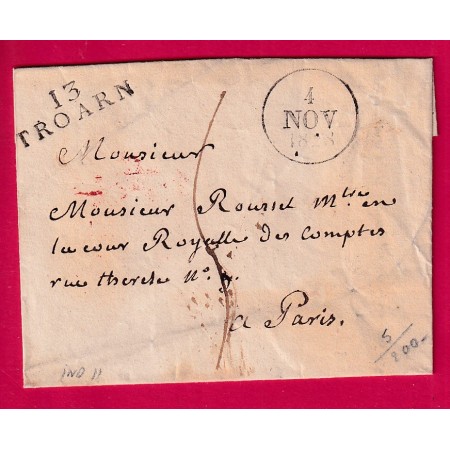 13
TROARN
4
NOV
Monsieur
Monsieur Roussel Mtre en
la cour Royalle des Comptes
rue therese n°.
a Paris.
5/200-
IND 11